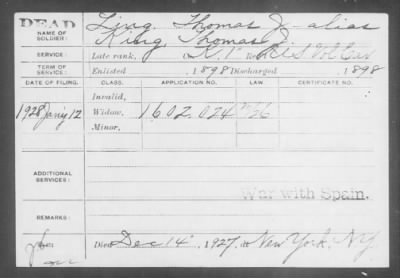 DEAD
NAME OF SOLDIER: Ling, Thomas J. alias
King, Thomas J.
SERVICE: Late rank, K, 1" Reg't U S Vol Cav
TERM OF SERVICE: Enlisted 1898 Discharged 1898
DATE OF FILING. CLASS. APPLICATION NO. LAW. CERTIFICATE NO.
Invalid,
1928 Jan'y 12 Widow, 1602.024
Minor,
ADDITIONAL SERVICES:
War with Spain.
REMARKS:
Died Dec 14", 1927, at New York, N.Y.